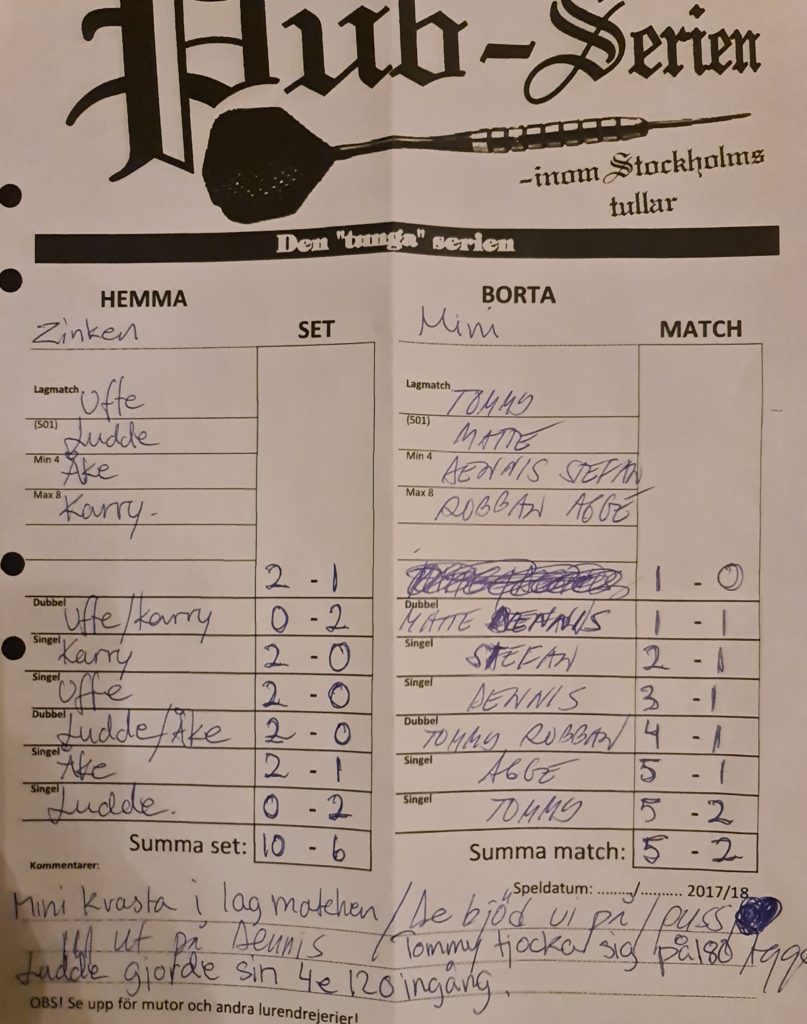 Pub-Serien
-inom Stockholms
tullar
Den "tunga" serien
HEMMA BORTA
Zinken SET Mini MATCH
Lagmatch Uffe Lagmatch TOMMY
(501) Ludde (501) MATTE
Min 4 Åke Min 4 DENNIS STEFAN
Max 8 Karry. Max 8 ROBBAN AGGE
2 - 1 1 - 0
Dubbel Uffe/Karry 0 - 2 Dubbel MATTE DENNIS 1 - 1
Singel Karry 2 - 0 Singel STEFAN 2 - 1
Singel Uffe 2 - 0 Singel DENNIS 3 - 1
Dubbel Ludde/Åke 2 - 0 Dubbel TOMMY ROBBAN 4 - 1
Singel Åke 2 - 1 Singel AGGE 5 - 1
Singel Ludde. 0 - 2 Singel TOMMY 5 - 2
Summa set: 10 - 6 Summa match: 5 - 2
Kommentarer: Speldatum: ......../.......... 2017/18
Mini krasta i lagmatchen / De bjöd vi på / puss
ut på Dennis Tommy tjockar sig på 180 /
Ludde gjorde sin 4e 120 ingång.
OBS! Se upp för mutor och andra lurendrejerier!